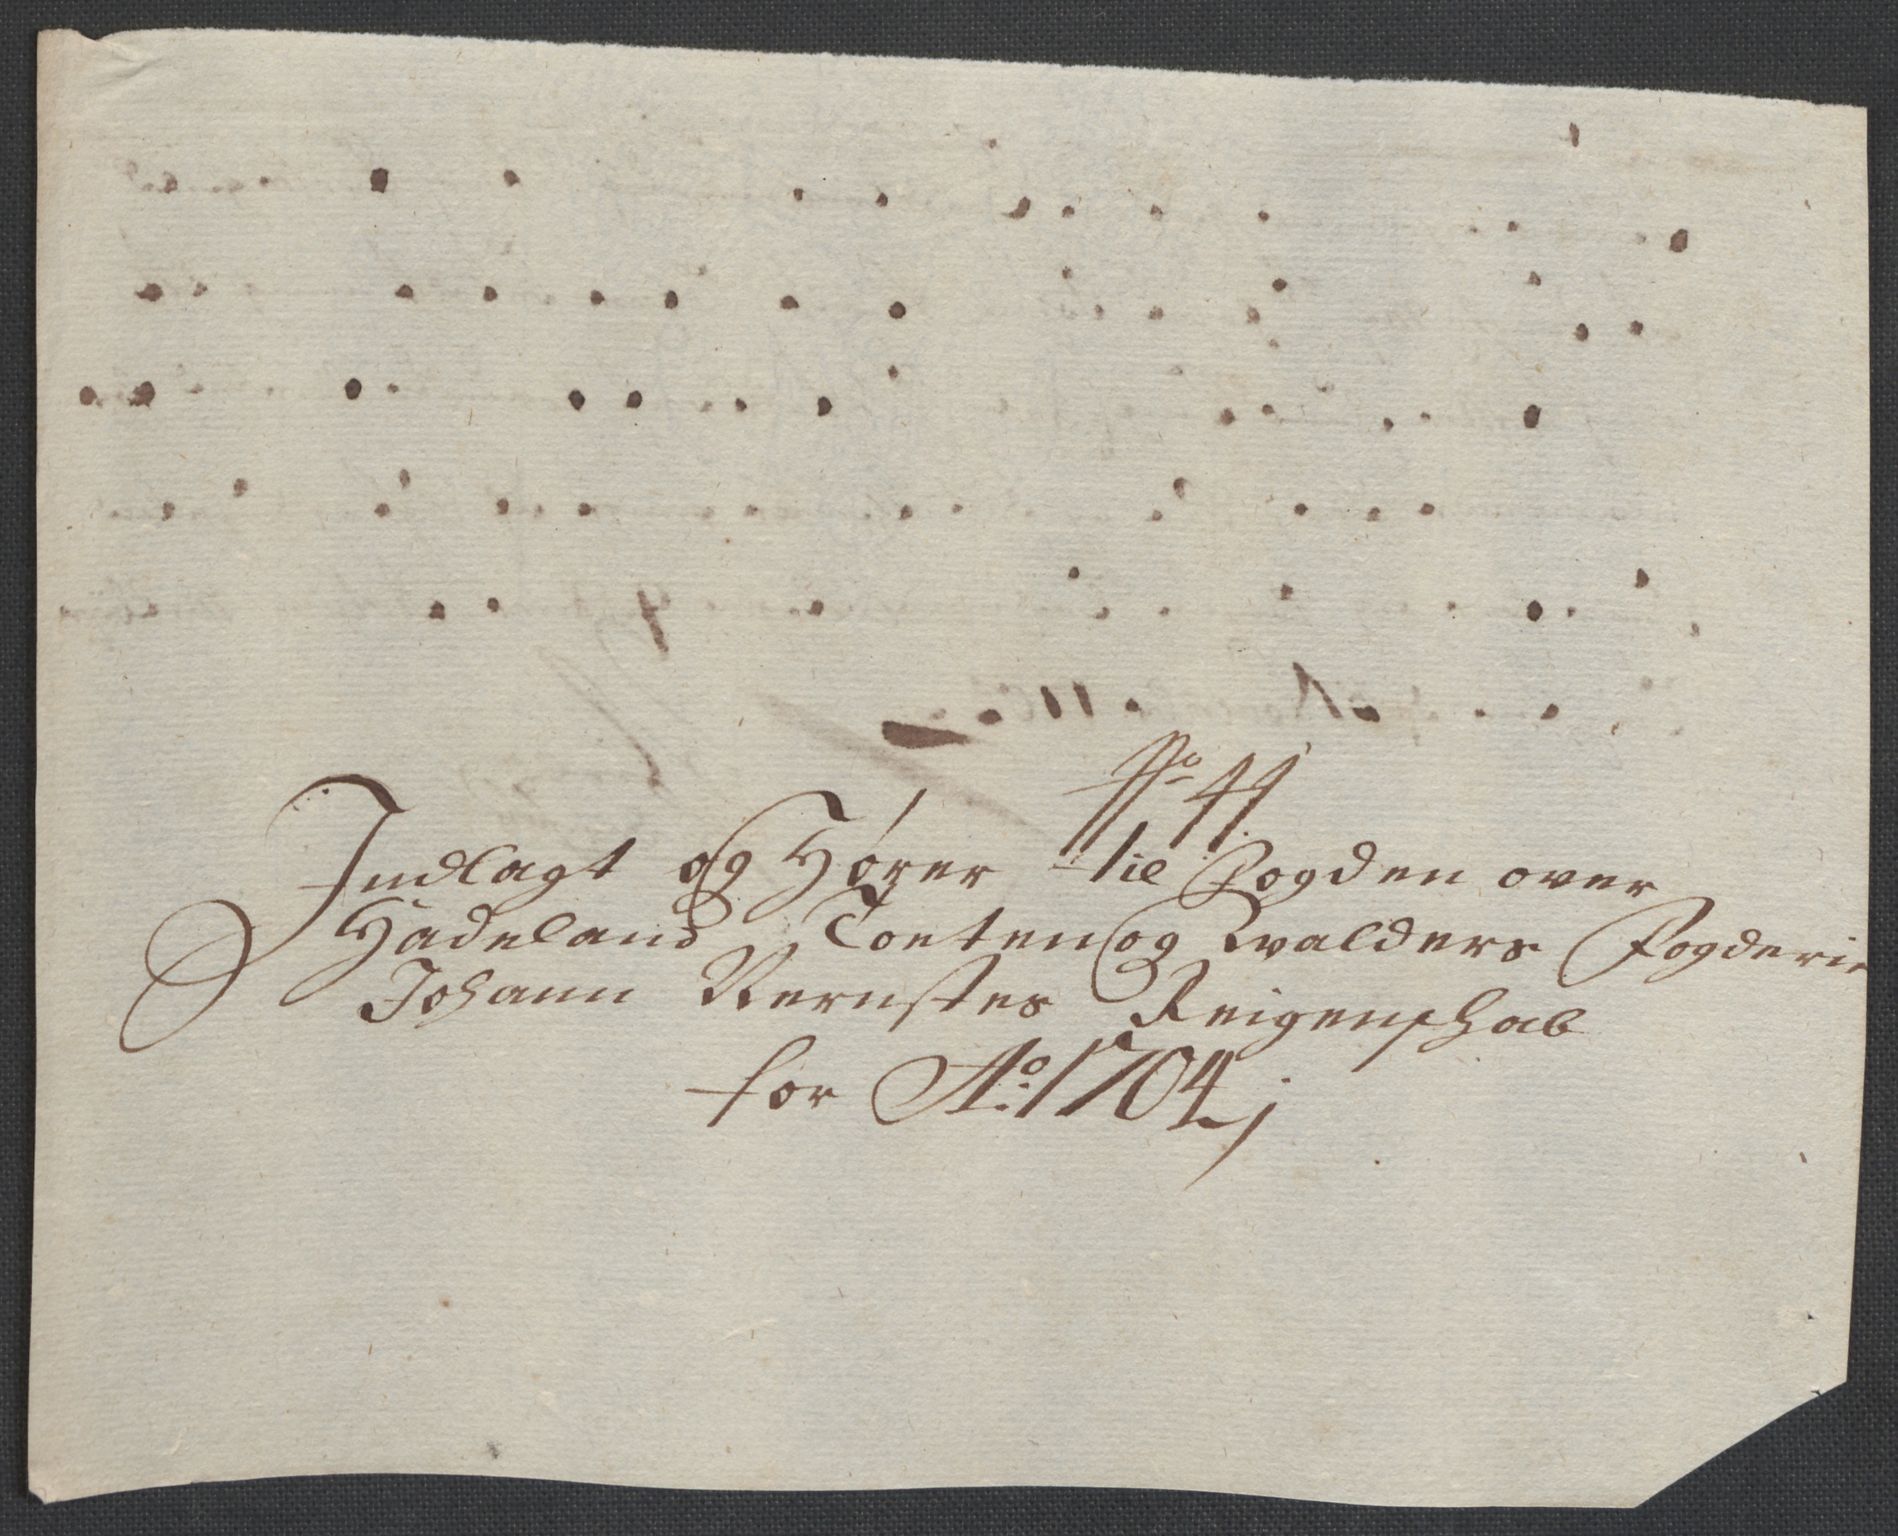 No 44
Indlagt og Hører til Fogden over
Hadeland Toeten og Walders Fogderie
Johann Rernstes Reigenschab
for Ao: 1704